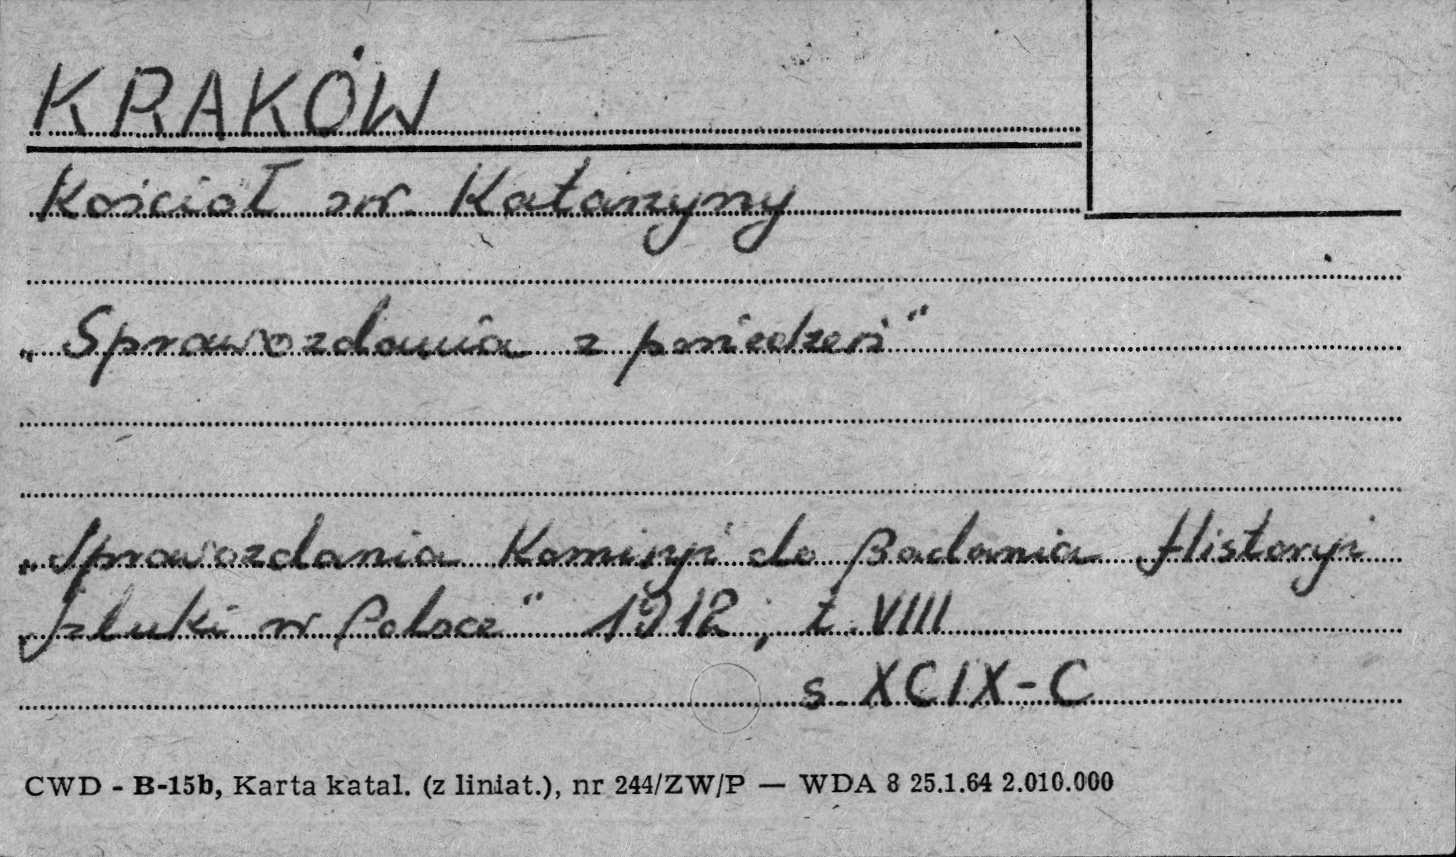 KRAKÓW
Kościół św. Katarzyny
„Sprawozdania z posiedzeń“
„Sprawozdania Komisyi do Badania Historyi
Sztuki w Polsce“ 1912, t. VIII
s. XCIX-C
CWD - B-15b, Karta katal. (z liniat.), nr 244/ZW/P — WDA 8 25.1.64 2.010.000